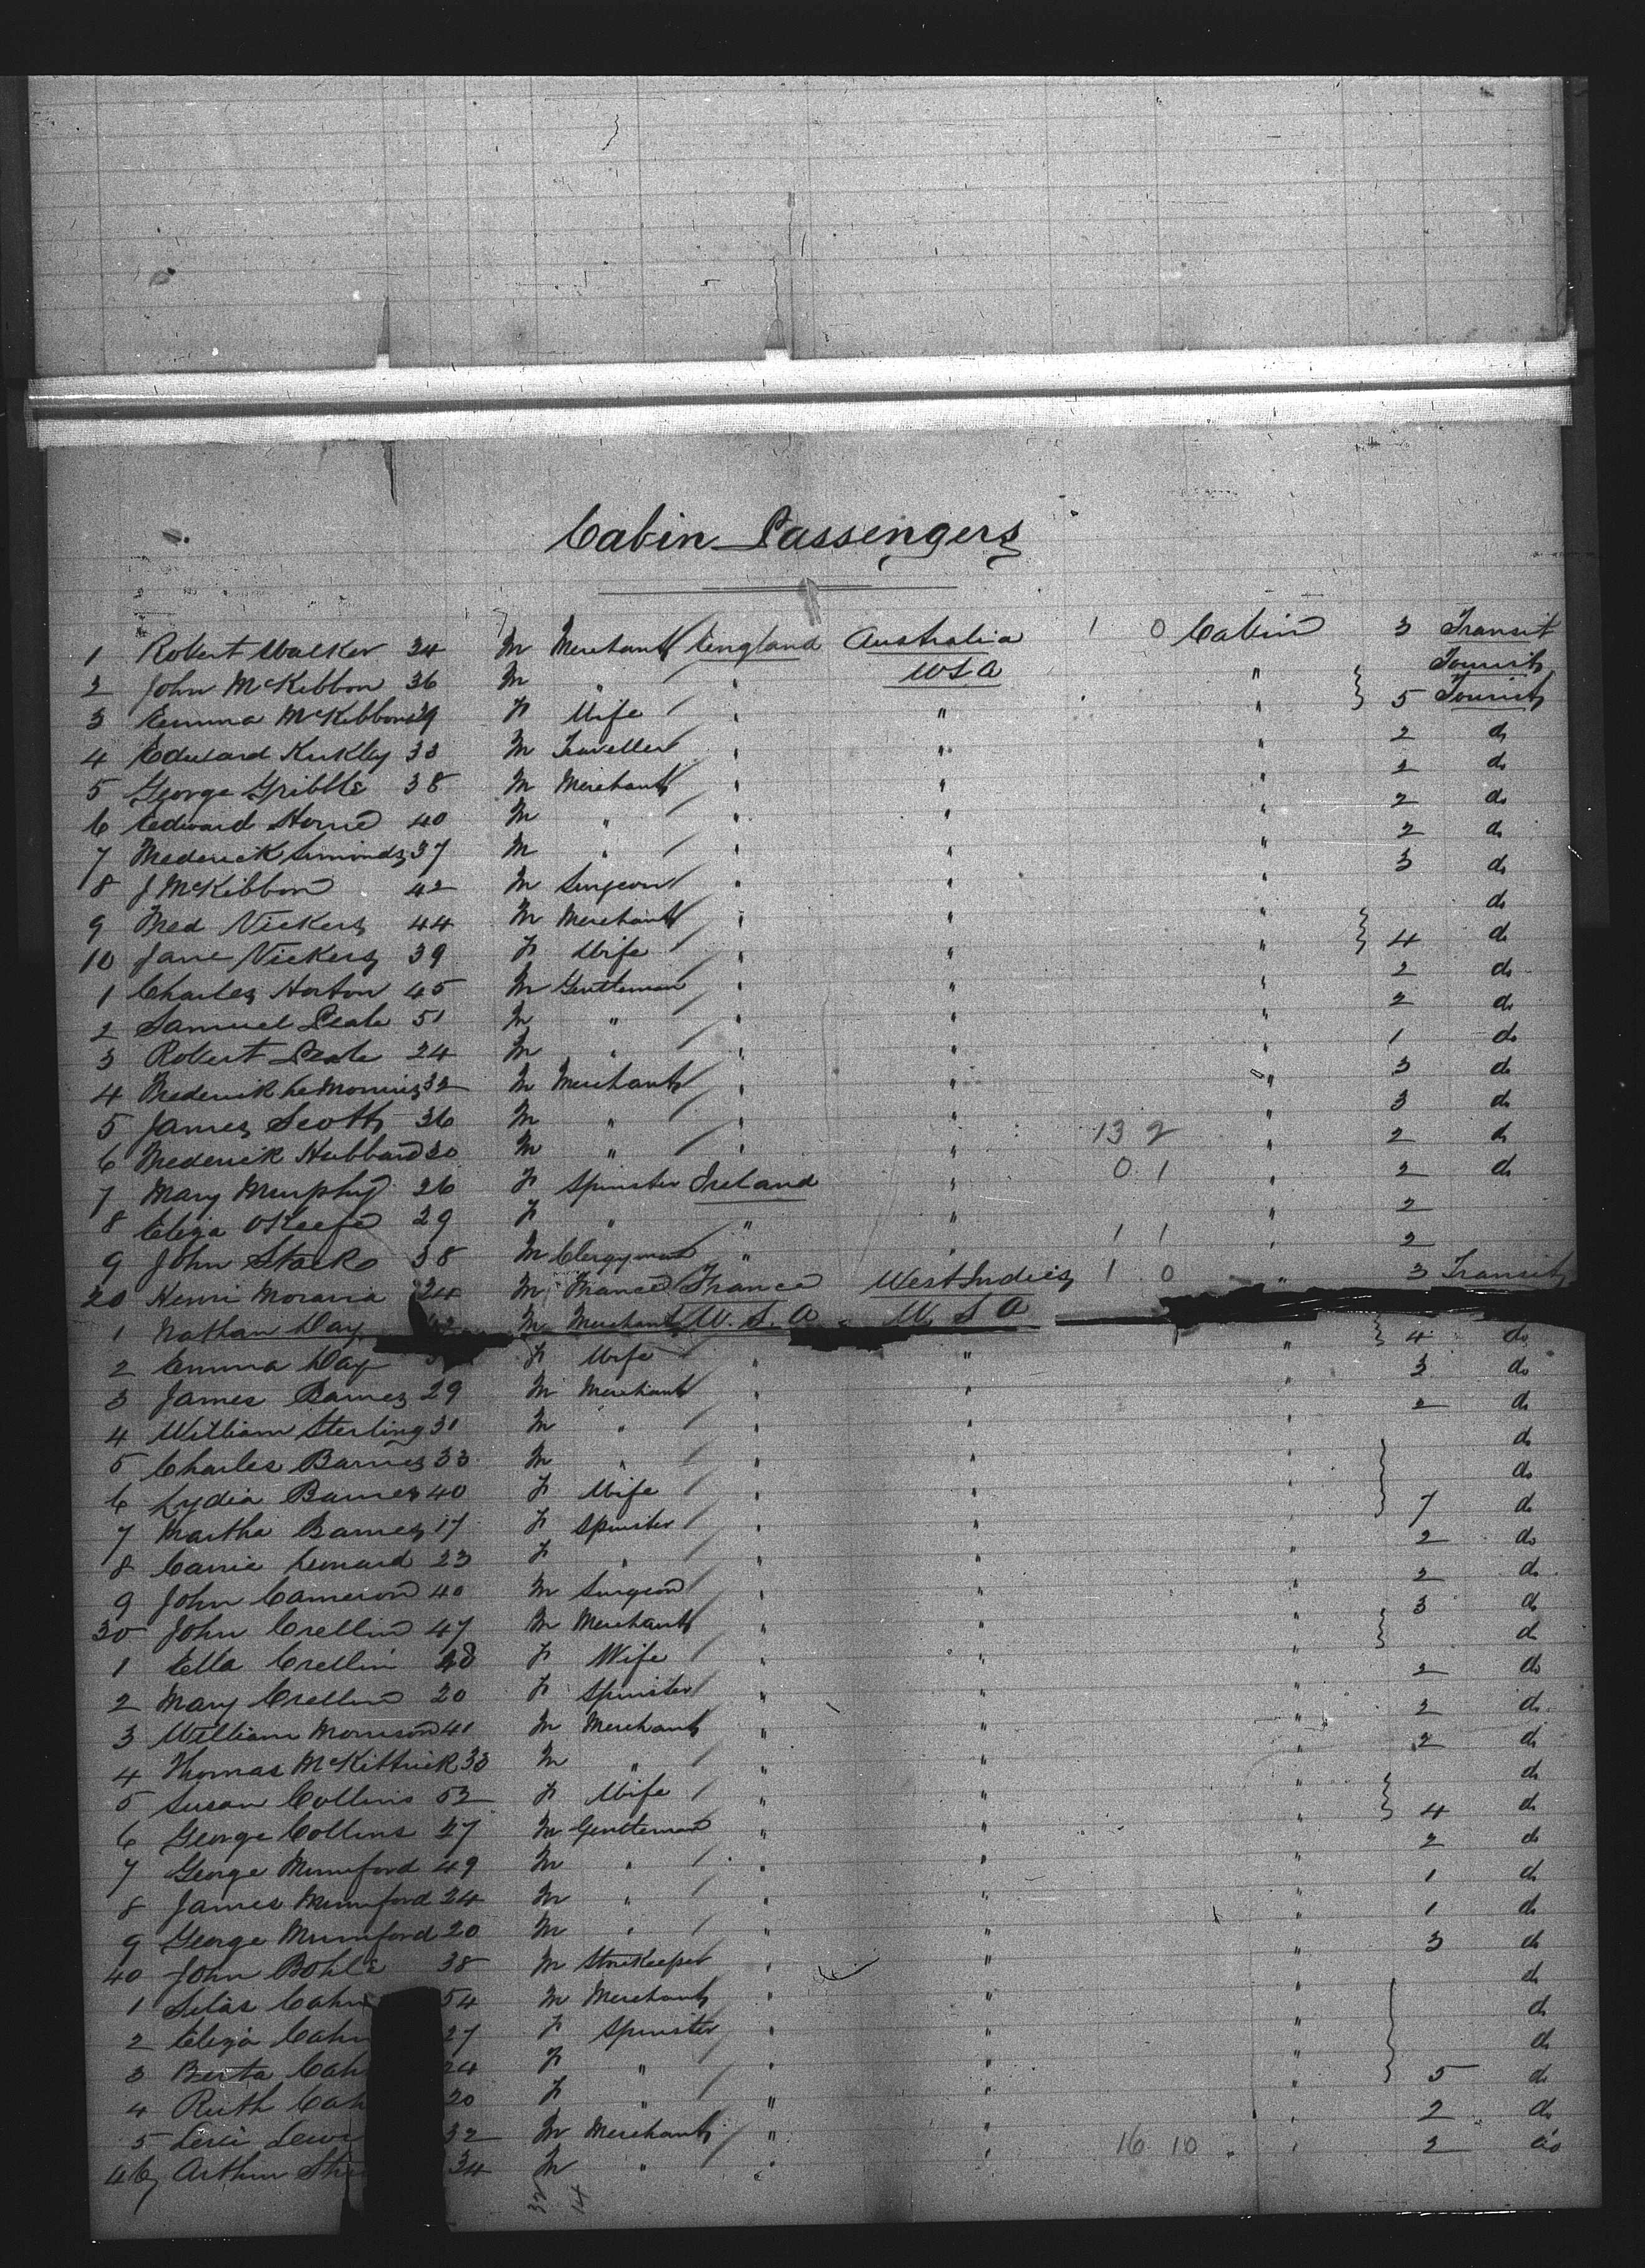 Cabin Passengers
1 Robert Walker 34 M Merchant England Australia 1 0 Cabin 3 Transit
2 John McKibbon 36 M " " USA " Tourist
3 Emma McKibbon 29 F Wife " " " 5 Tourist
4 Edward Kirkley 33 M Traveller " " " 2 do
5 George Gribble 38 M Merchant " " " 2 do
6 Edward Horne 40 M " " " " 2 do
7 Frederick Simonds 37 M " " " " 2 do
8 J McKibbon 42 M Surgeon " " " 3 do
9 Fred Vickers 44 M Merchant " " " do
10 Jane Vickers 39 F Wife " " " 4 do
1 Charles Horton 45 M Gentleman " " " 2 do
2 Samuel Peale 51 M " " " " 2 do
3 Robert Peale 24 M " " " " 1 do
4 Frederick 32 M Merchant " " " 3 do
5 James Scott 36 M " " " " 3 do
6 Frederick Hubbard 30 M " " " 13 2 " 2 do
7 Mary Murphy 26 F Spinster Ireland " 0 1 " 2 do
8 Eliza OKeefe 29 F " " " " 2
9 John Stack 38 M Clergyman " " 1 1 " 2
20 Henri Morarra 24 M France France West Indies 1 0 " 3 Transit
1 Nathan Day M Merchant U.S.A U S A
2 Emma Day F Wife " " " 4 do
3 James Barnes 29 M Merchant " " " 3 do
4 William Sterling 31 M " " " " 2 do
5 Charles Barnes 33 M " " " " do
6 Lydia Barnes 40 F Wife " " " do
7 Martha Barnes 17 F Spinster " " " 7 do
8 Carrie Leonard 23 F " " " " 2 do
9 John Cameron 40 M Surgeon " " " 2 do
30 John Crellin 47 M Merchant " " " 3 do
1 Ella Crellin 48 F Wife " " " do
2 Mary Crellin 20 F Spinster " " " 2 do
3 William Morrison 41 M Merchant " " " 2 do
4 Thomas McKittrick 33 M " " " " 2 do
5 Susan Collins 52 F Wife " " " do
6 George Collins 27 M Gentleman " " " 4 do
7 George Mumford 49 M " " " " 2 do
8 James Mumford 24 M " " " " 1 do
9 George Mumford 20 M " " " " 1 do
40 John Bohle 38 M Storekeeper " " " 3 do
1 Silas Cahn 54 M Merchant " " " do
2 Eliza Cahn 27 F Spinster " " " do
3 Berta Cah 24 F " " " " do
4 Ruth Cah 20 F " " " " 5 do
5 Levi Lewi 32 M Merchant " " " 2 do
46 Arthur 34 M " " " 16 10 " 2 do
32 14